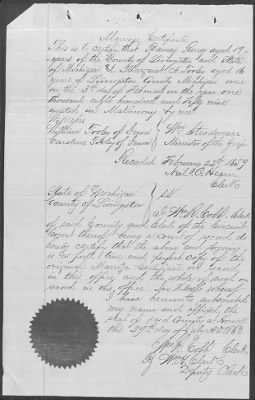 Marriage Certificate
This is to certify that Harvey aged 19
years of the County of Livingston and State
of Michigan & Margaret A. Tooley aged 16
years of Livingston County Michigan were
on the 3rd day of February in the year one
thousand eight hundred and fifty nine
united in Matrimony by me.
Witness
William Tooley of Iosco
Caroline Tooley of Iosco
Wm
Minister of the Gospel
Recorded February 22nd 1859
O. Hearn
Clerk
State of Michigan
County of Livingston
SS
I, Wm R. Cobb, Clerk
of said County and Clerk of the Circuit
Court thereof, being a Court of record do
hereby certify that the above and foregoing
is a full true and perfect copy of the
original Marriage on record
in this office and the whole of such
record in this office. In Witness whereof
I have hereunto subscribed
my name and affixed the
seal of said County at Howell
this 29th day of July A.D. 1863
Wm R. Cobb Clerk
By Wm H. Clark
Deputy Clerk